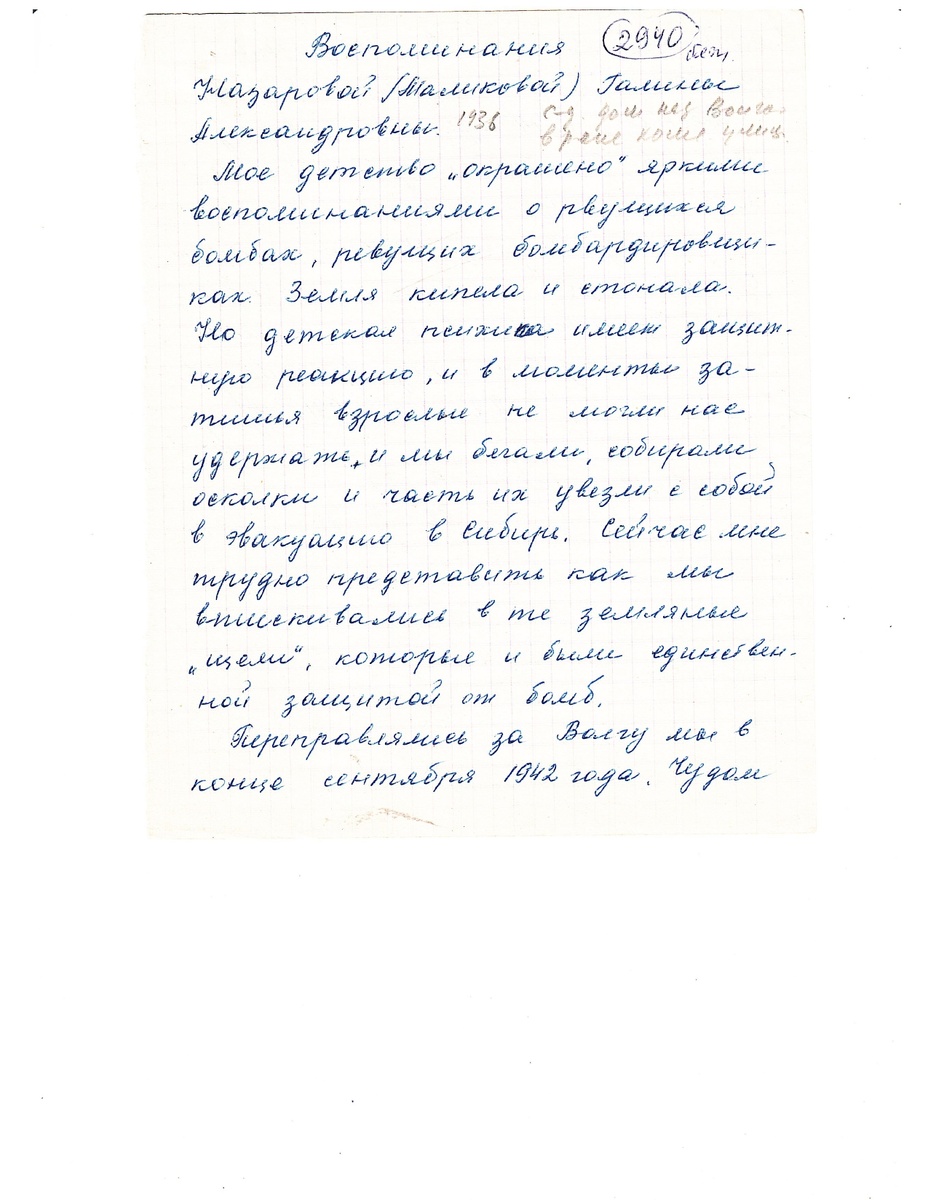 Воспоминания 2940
Назаровой (Маликовой) Галины
Александровны. 1936 дом над
в
Мое детство „окрашено" яркими
воспоминаниями о рвущихся
бомбах, ревущих бомбардировщи-
ках. Земля кипела и стонала.
Но детская психика имеет защит-
ную реакцию, и в моменты за-
тишья взрослые не могли нас
удержать, и мы бегали, собирали
осколки и часть их увезли с собой
в эвакуацию в Сибирь. Сейчас мне
трудно представить как мы
втискивались в те земляные
„щели", которые и были единствен-
ной защитой от бомб.
Переправлялись за Волгу мы в
конце сентября 1942 года. Чудом